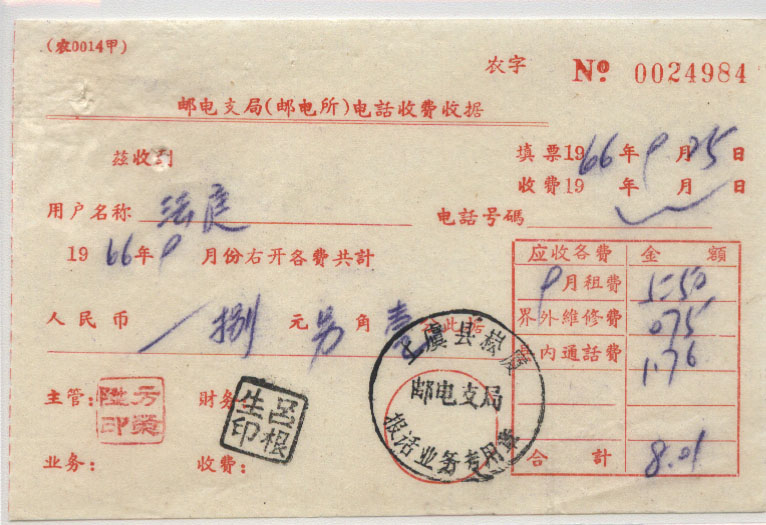 (农0014甲)
农字 № 0024984
邮电支局(邮电所)电話收费收据
兹收到
填票1966年9月25日
收费19 年 月 日
用户名称 法庭
电話号碼
1966年9月份右开各费共計
人民币 捌元另角壹
应收各费 金 額
9月租费 5.50
界外維修费 0.75
内通話费 1.76
合 計 8.01
主管:
财务:
吕根生印
业务: 收费:
上虞县崧厦
邮电支局
报话业务专用章